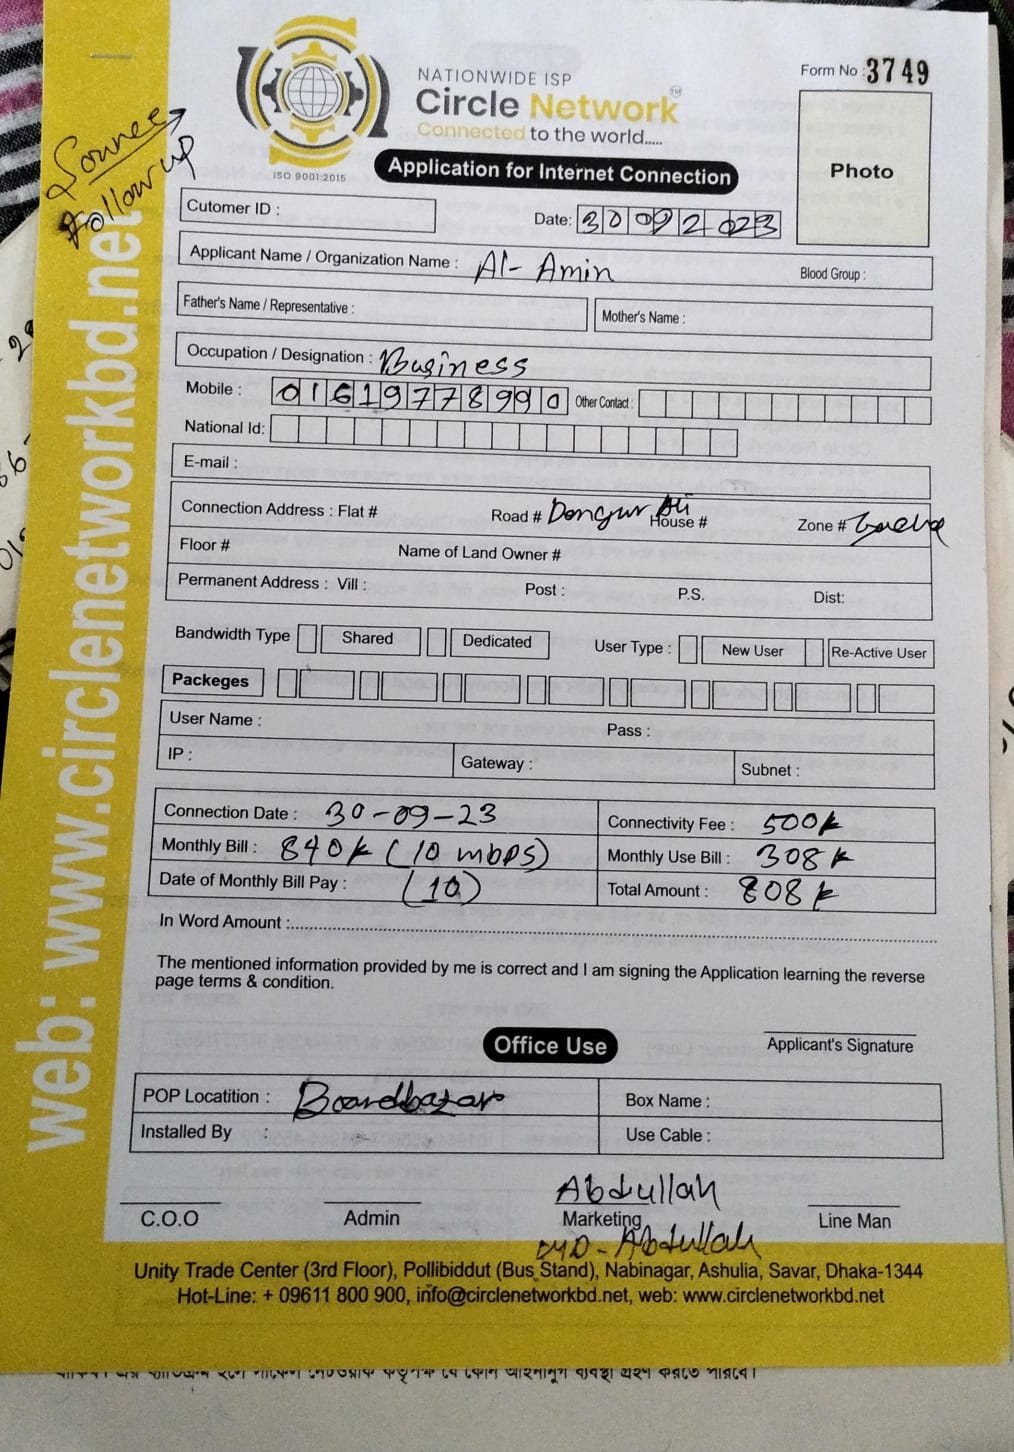 Source →
Follow up
NATIONWIDE ISP
Circle Network TM
Connected to the world.....
ISO 9001:2015
Form No : 3749
Photo
Application for Internet Connection
Cutomer ID :
Date: 30092023
Applicant Name / Organization Name : Al-Amin
Blood Group :
Father's Name / Representative :
Mother's Name :
Occupation / Designation : Business
Mobile : 01619778990 Other Contact :
National Id:
E-mail :
Connection Address : Flat # Road # Ali House # Zone #
Floor # Name of Land Owner #
Permanent Address : Vill : Post : P.S. Dist:
Bandwidth Type Shared Dedicated User Type : New User Re-Active User
Packeges
User Name : Pass :
IP : Gateway : Subnet :
Connection Date : 30-09-23 Connectivity Fee : 500৳
Monthly Bill : 840৳ (10 mbps) Monthly Use Bill : 308৳
Date of Monthly Bill Pay : (10) Total Amount : 808৳
In Word Amount :
The mentioned information provided by me is correct and I am signing the Application learning the reverse
page terms & condition.
Office Use
Applicant's Signature
POP Locatition : Boardbazar Box Name :
Installed By : Use Cable :
Abdullah
C.O.O Admin Marketing Line Man
Abdullah
Unity Trade Center (3rd Floor), Pollibiddut (Bus Stand), Nabinagar, Ashulia, Savar, Dhaka-1344
Hot-Line: + 09611 800 900, info@circlenetworkbd.net, web: www.circlenetworkbd.net
web: www.circlenetworkbd.net